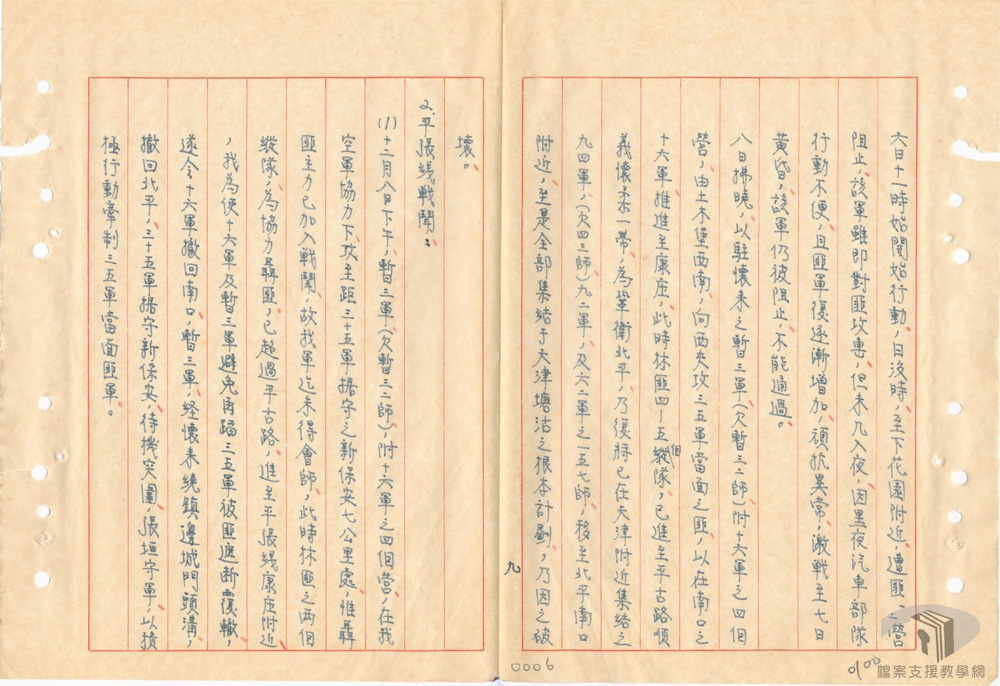 六日十一時始開始行動，日沒時，至下花園附近，遭匪一營
阻止，該軍雖即對匪攻擊，但未几入夜，因黑夜汽車部隊
行動不便，且匪軍復逐漸增加，頑抗異常，激戰至七日
黃昏，該軍仍被阻止，不能通過。
八日拂曉，以駐懷來之暫三軍（欠暫三二師）附十六軍之四個
營，由土木堡西南，向西夾攻三五軍當面之匪，以在南口之
十六軍推進至康庄，此時林匪四－五個縱隊，已進至平古路順
義懷柔一帶，為鞏衛北平，乃復將已在天津附近集結之
九四軍，（欠四三師）九二軍，及六二軍之一五七師，移至北平南口
附近，至是全部集結于天津塘沽之根本計劃，乃因之破
九
壞。
2.平張綫戰鬪：
(1)十二月八日下午，暫三軍（欠暫三二師），附十六軍之四個營，在我
空軍協力下攻至距三十五軍據守之新保安七公里處，惟聶
匪主力已加入戰鬪，故我軍迄未得會師，此時林匪之两個
縱隊，為協力聶匪，已超過平古路，進至平張綫康庄附近
，我為使十六軍及暫三軍避免再蹈三五軍被匪遮断覆轍，
遂令十六軍撤回南口，暫三軍，經懷来繞鎮邊城門頭溝，
撤回北平，三十五軍据守新保安，待機突圍，張垣守軍，以積
極行動牽制三五軍當面匪軍。
0006
檔案支援教學網